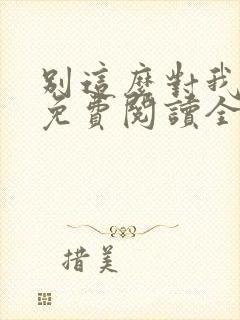 別這麼對我
免費閱讀全
措美